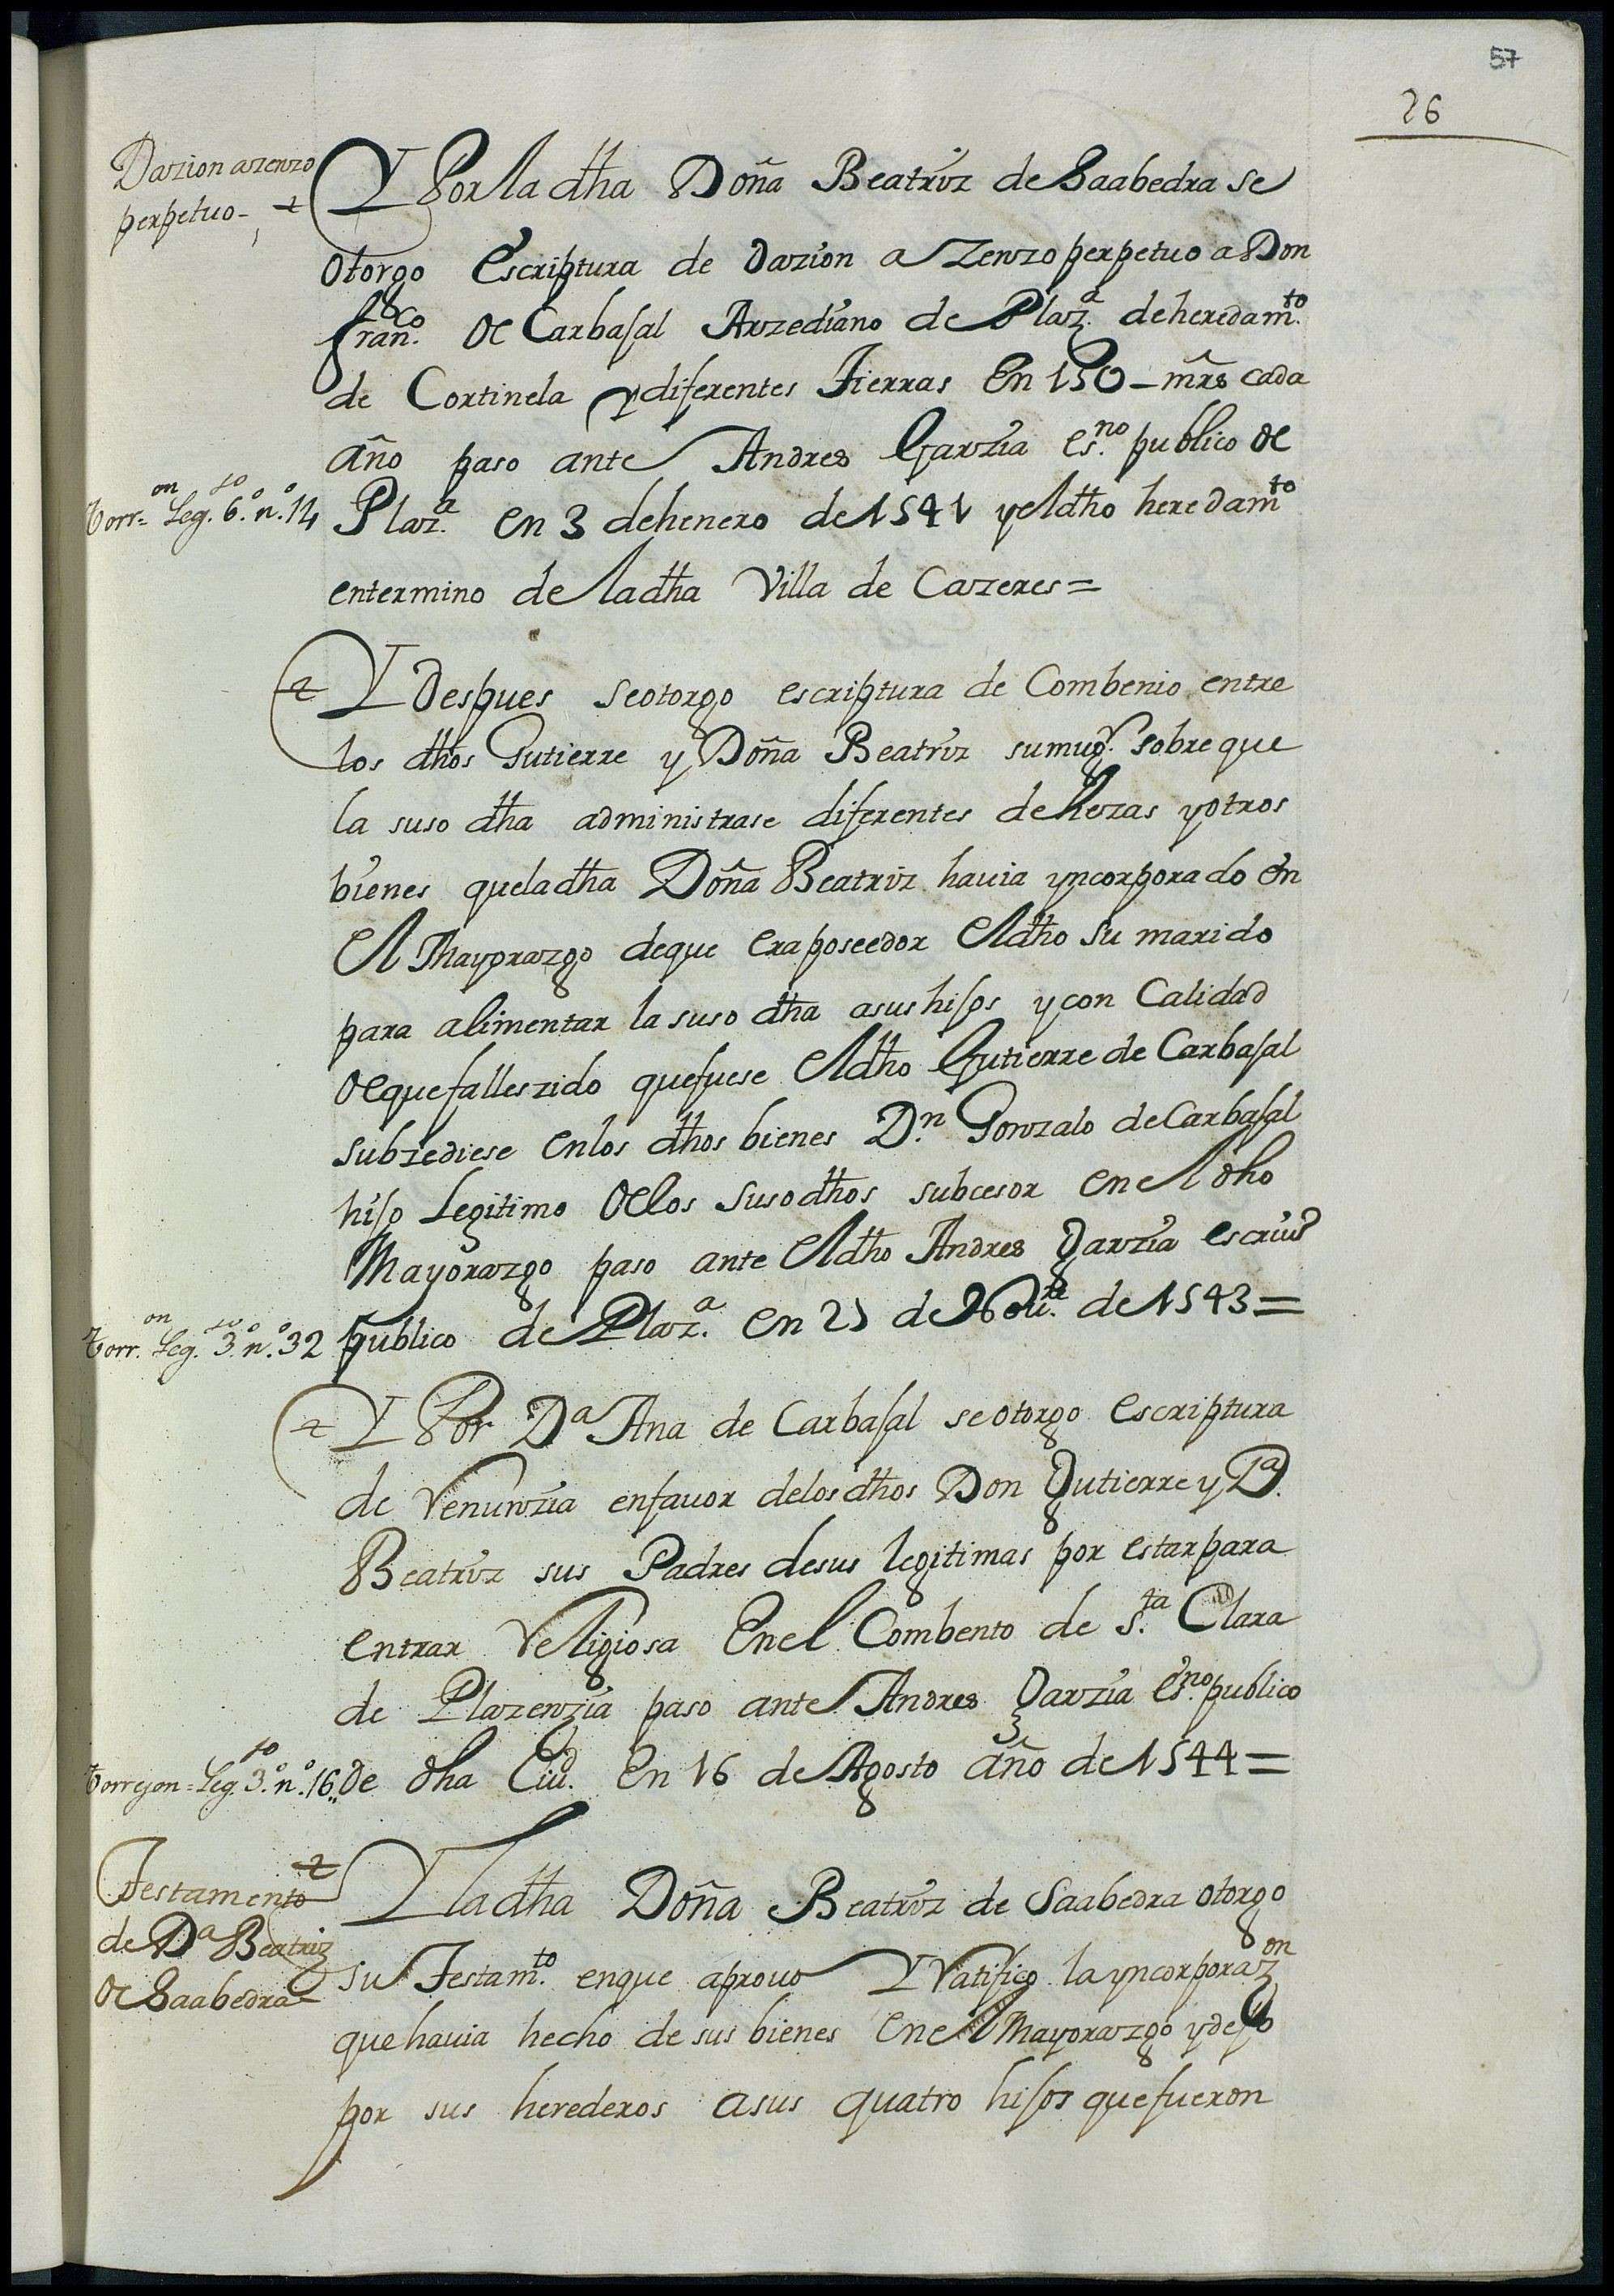 57
26
Dazion azenzo
perpetuo-
Y Por la dha Doña Beatriz de Saabedra se
otorgo Escriptura de dazion a Zenzo perpetuo a Don
fran.co de Carbajal Arzediano de Plaz.a de heredam.to
de Cortinela y diferentes Tierras En 150 - mrs cada
año paso ante Andres Garzia es.no publico de
Torr.on Leg.to 6.o n.o 14
Plaz.a en 3 de henero de 1541 y el dho heredam.to
en termino de la dha Villa de Cazeres =
Y despues se otorgo escriptura de Combenio entre
los dhos Gutierre y Doña Beatriz su mug.r sobre que
la suso dha administrase diferentes dehezas y otros
bienes que la dha Doña Beatriz hauia yncorporado En
El Mayorazgo de que era poseedor El dho Su marido
para alimentar la suso dha a sus hijos y con Calidad
de que falleszido que fuese El dho Gutierre de Carbajal
subzediese en los dhos bienes D.n Gonzalo de Carbajal
hijo Legitimo de los Suso dhos subcesor en el dho
Mayorazgo paso ante El dho Andres Garzia escriuo
Torr.on Leg.to 3.o n.o 32
publico de Plaz.a en 25 de de 1543 =
Y Por D.a Ana de Carbajal se otorgo escriptura
de renunzia en fauor de los dhos Don Gutierre y D.a
Beatriz sus Padres de sus legitimas por estar para
entrar Religiosa En el Combento de S.ta Clara
de Plazenzia paso ante Andres Garzia es.no publico
Torrejon = Leg.to 3.o n.o 16..
de dha Ciu.d En 16 de Agosto año de 1544 =
Testamento
de D.a Beatriz
de Saabedra
Y la dha Doña Beatriz de Saabedra otorgo
su Testam.to en que aprouo Y ratifico la yncorporaz.on
que hauia hecho de sus bienes en el Mayorazgo y dejo
por sus herederos a sus quatro hijos que fueron